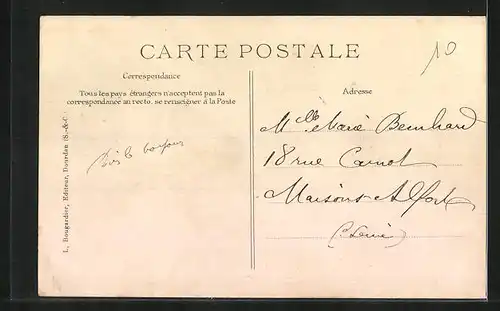 CARTE POSTALE
10
Correspondance
Tous les pays étrangers n'acceptent pas la
correspondance au recto, se renseigner à la Poste
Adresse
Mlle Marie Bernhard
18 rue Carnot
Maisons-Alfort
(Seine)
L. Bougardier, Editeur, Dourdan (S.-&-O.)